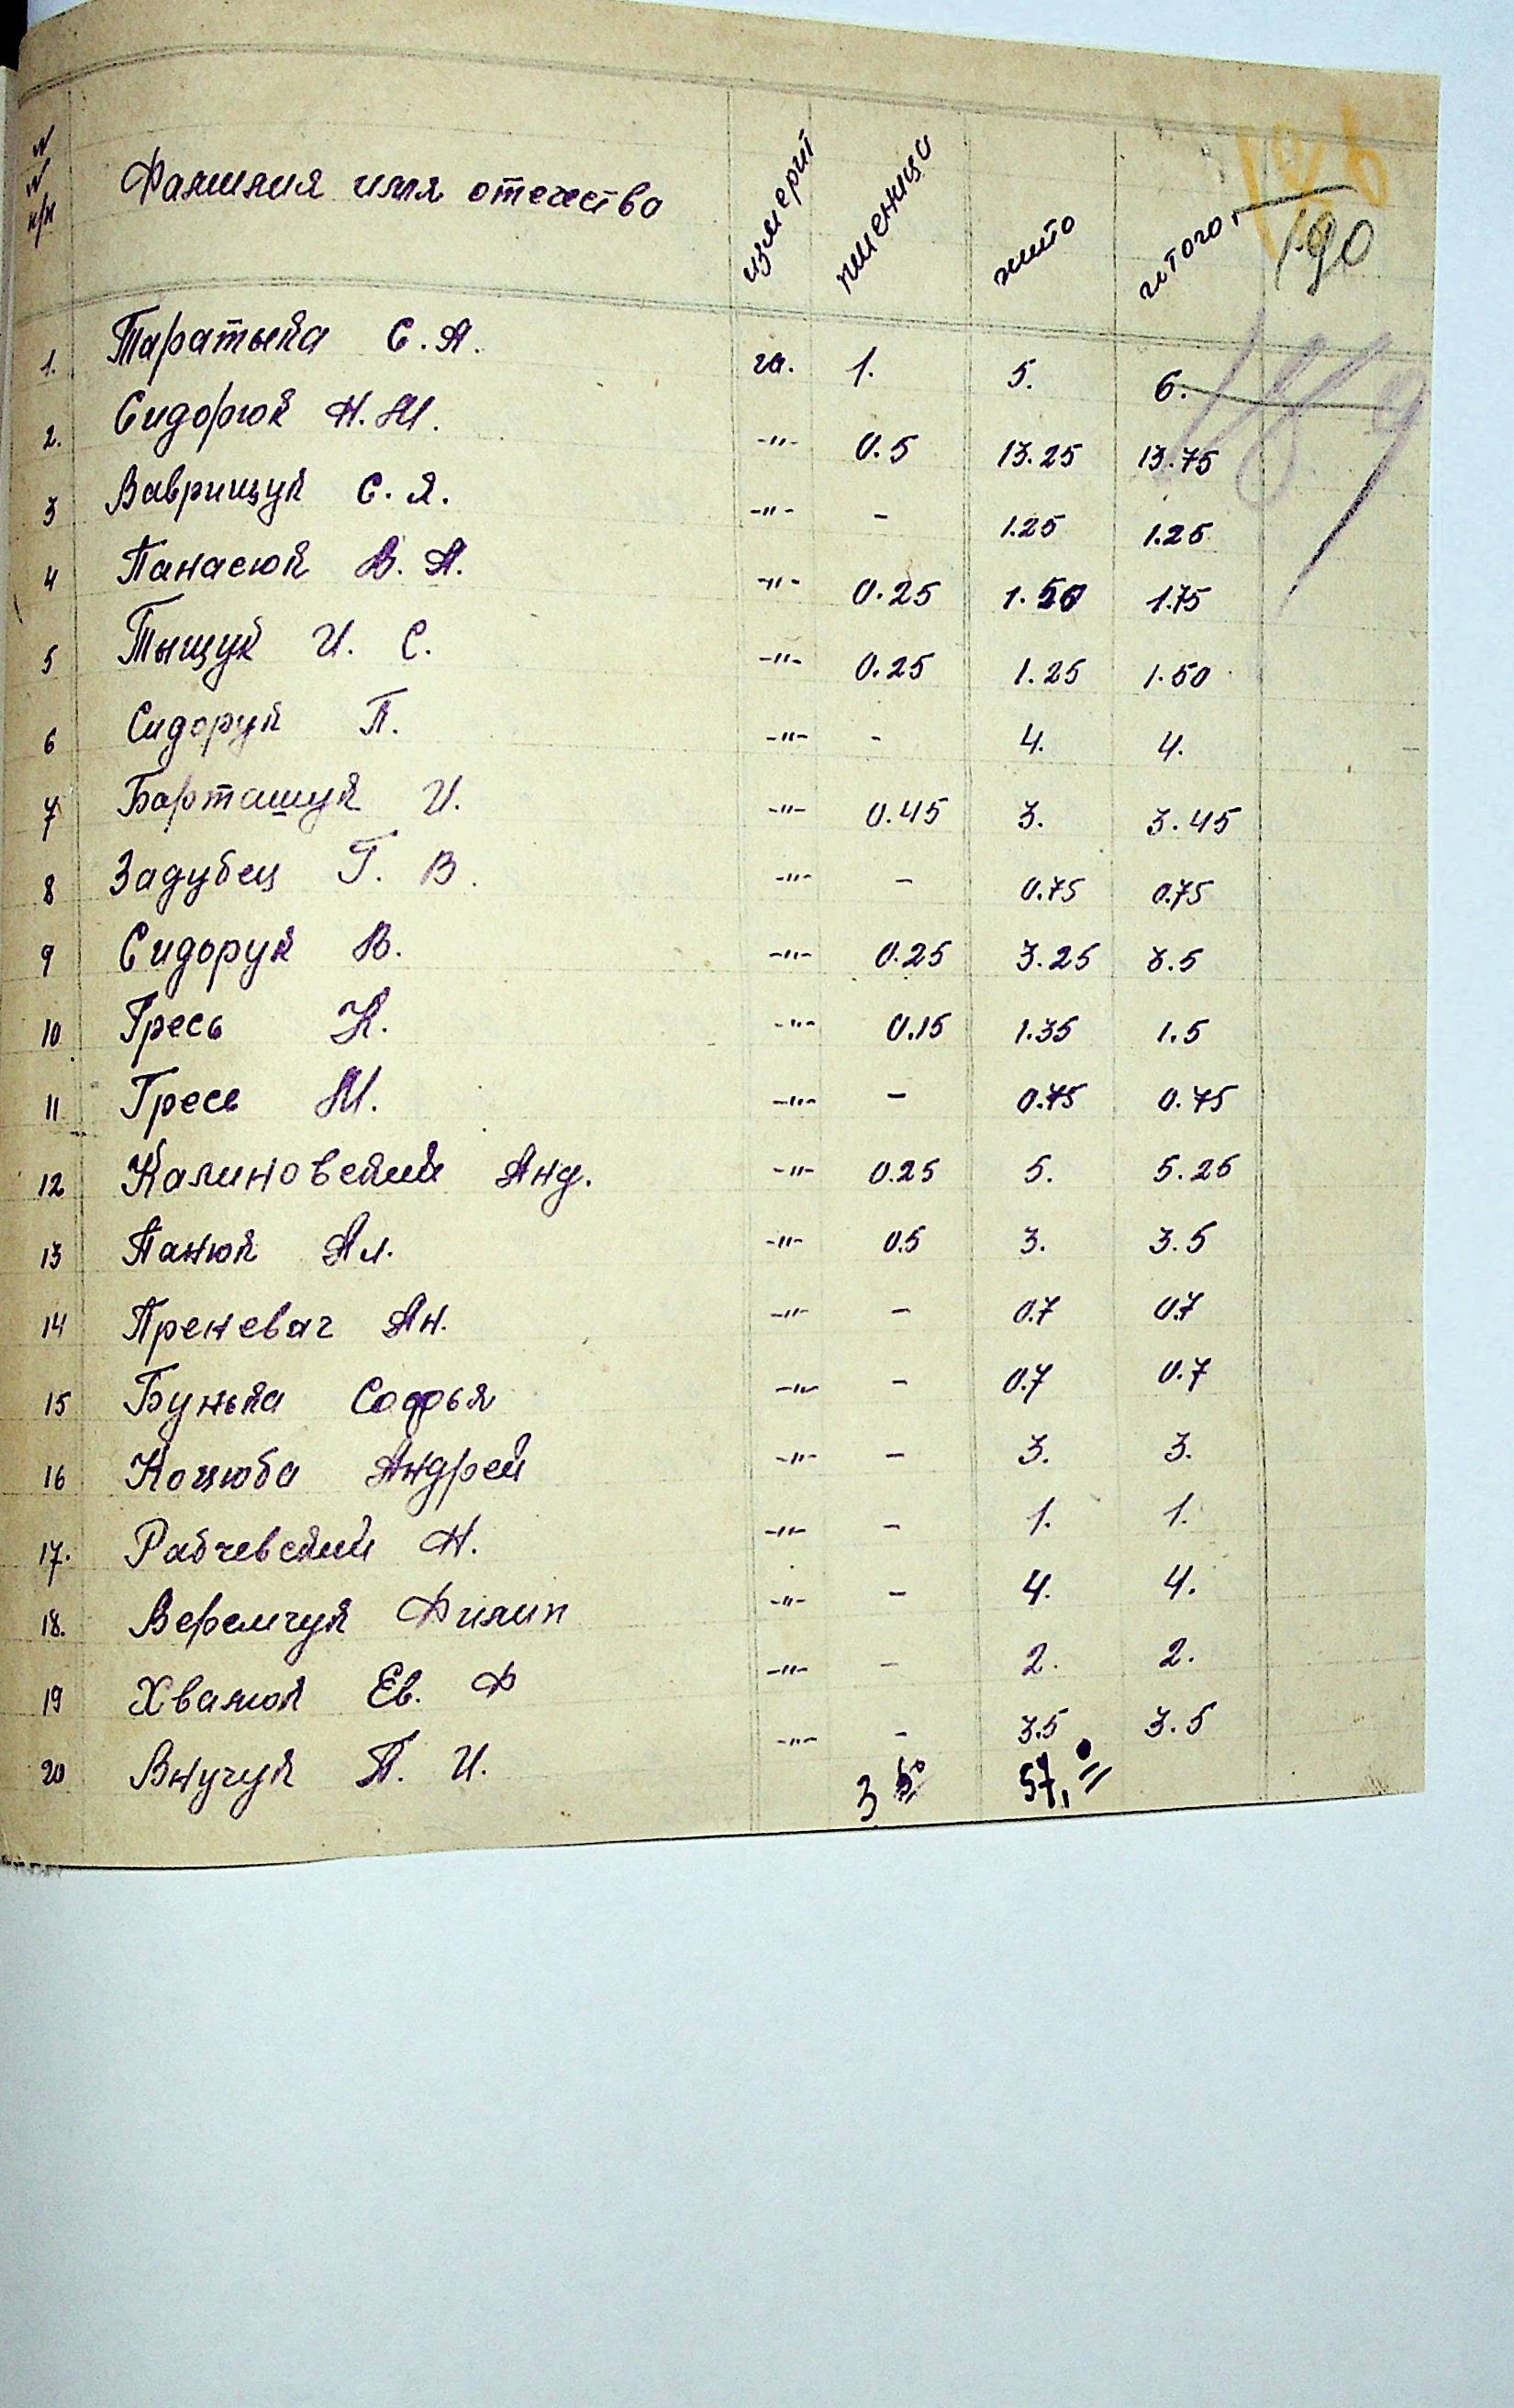 196
190
189
NN п/п Фамилия имя отечество измерит пшеница жито итого
1. Таратыка С. А. га. 1. 5. 6.
2. Сидорюк Н. М. -"- 0.5 13.25 13.75
3 Ваврищук С. Я. -"- - 1.25 1.25
4 Панасюк В. А. -"- 0.25 1.50 1.75
5 Тыщук И. С. -"- 0.25 1.25 1.50
6 Сидорук П. -"- - 4. 4.
7 Барташук И. -"- 0.45 3. 3.45
8 Задубец Г. В. -"- - 0.75 0.75
9 Сидорук В. -"- 0.25 3.25 3.5
10 Гресь Н. -"- 0.15 1.35 1.5
11 Гресь М. -"- - 0.75 0.75
12 Калиновский Анд. -"- 0.25 5. 5.25
13 Панюк Ал. -"- 0.5 3. 3.5
14 Преневач Ан. -"- - 0.7 0.7
15 Бунька Софья -"- - 0.7 0.7
16 Коцюба Андрей -"- - 3. 3.
17. Рабчевский Н. -"- - 1. 1.
18. Веремчук Филип -"- - 4. 4.
19 Хвалюк Ев. Ф -"- - 2. 2.
20 Внучук П. И. -"- - 3.5 3.5
3 50 57,